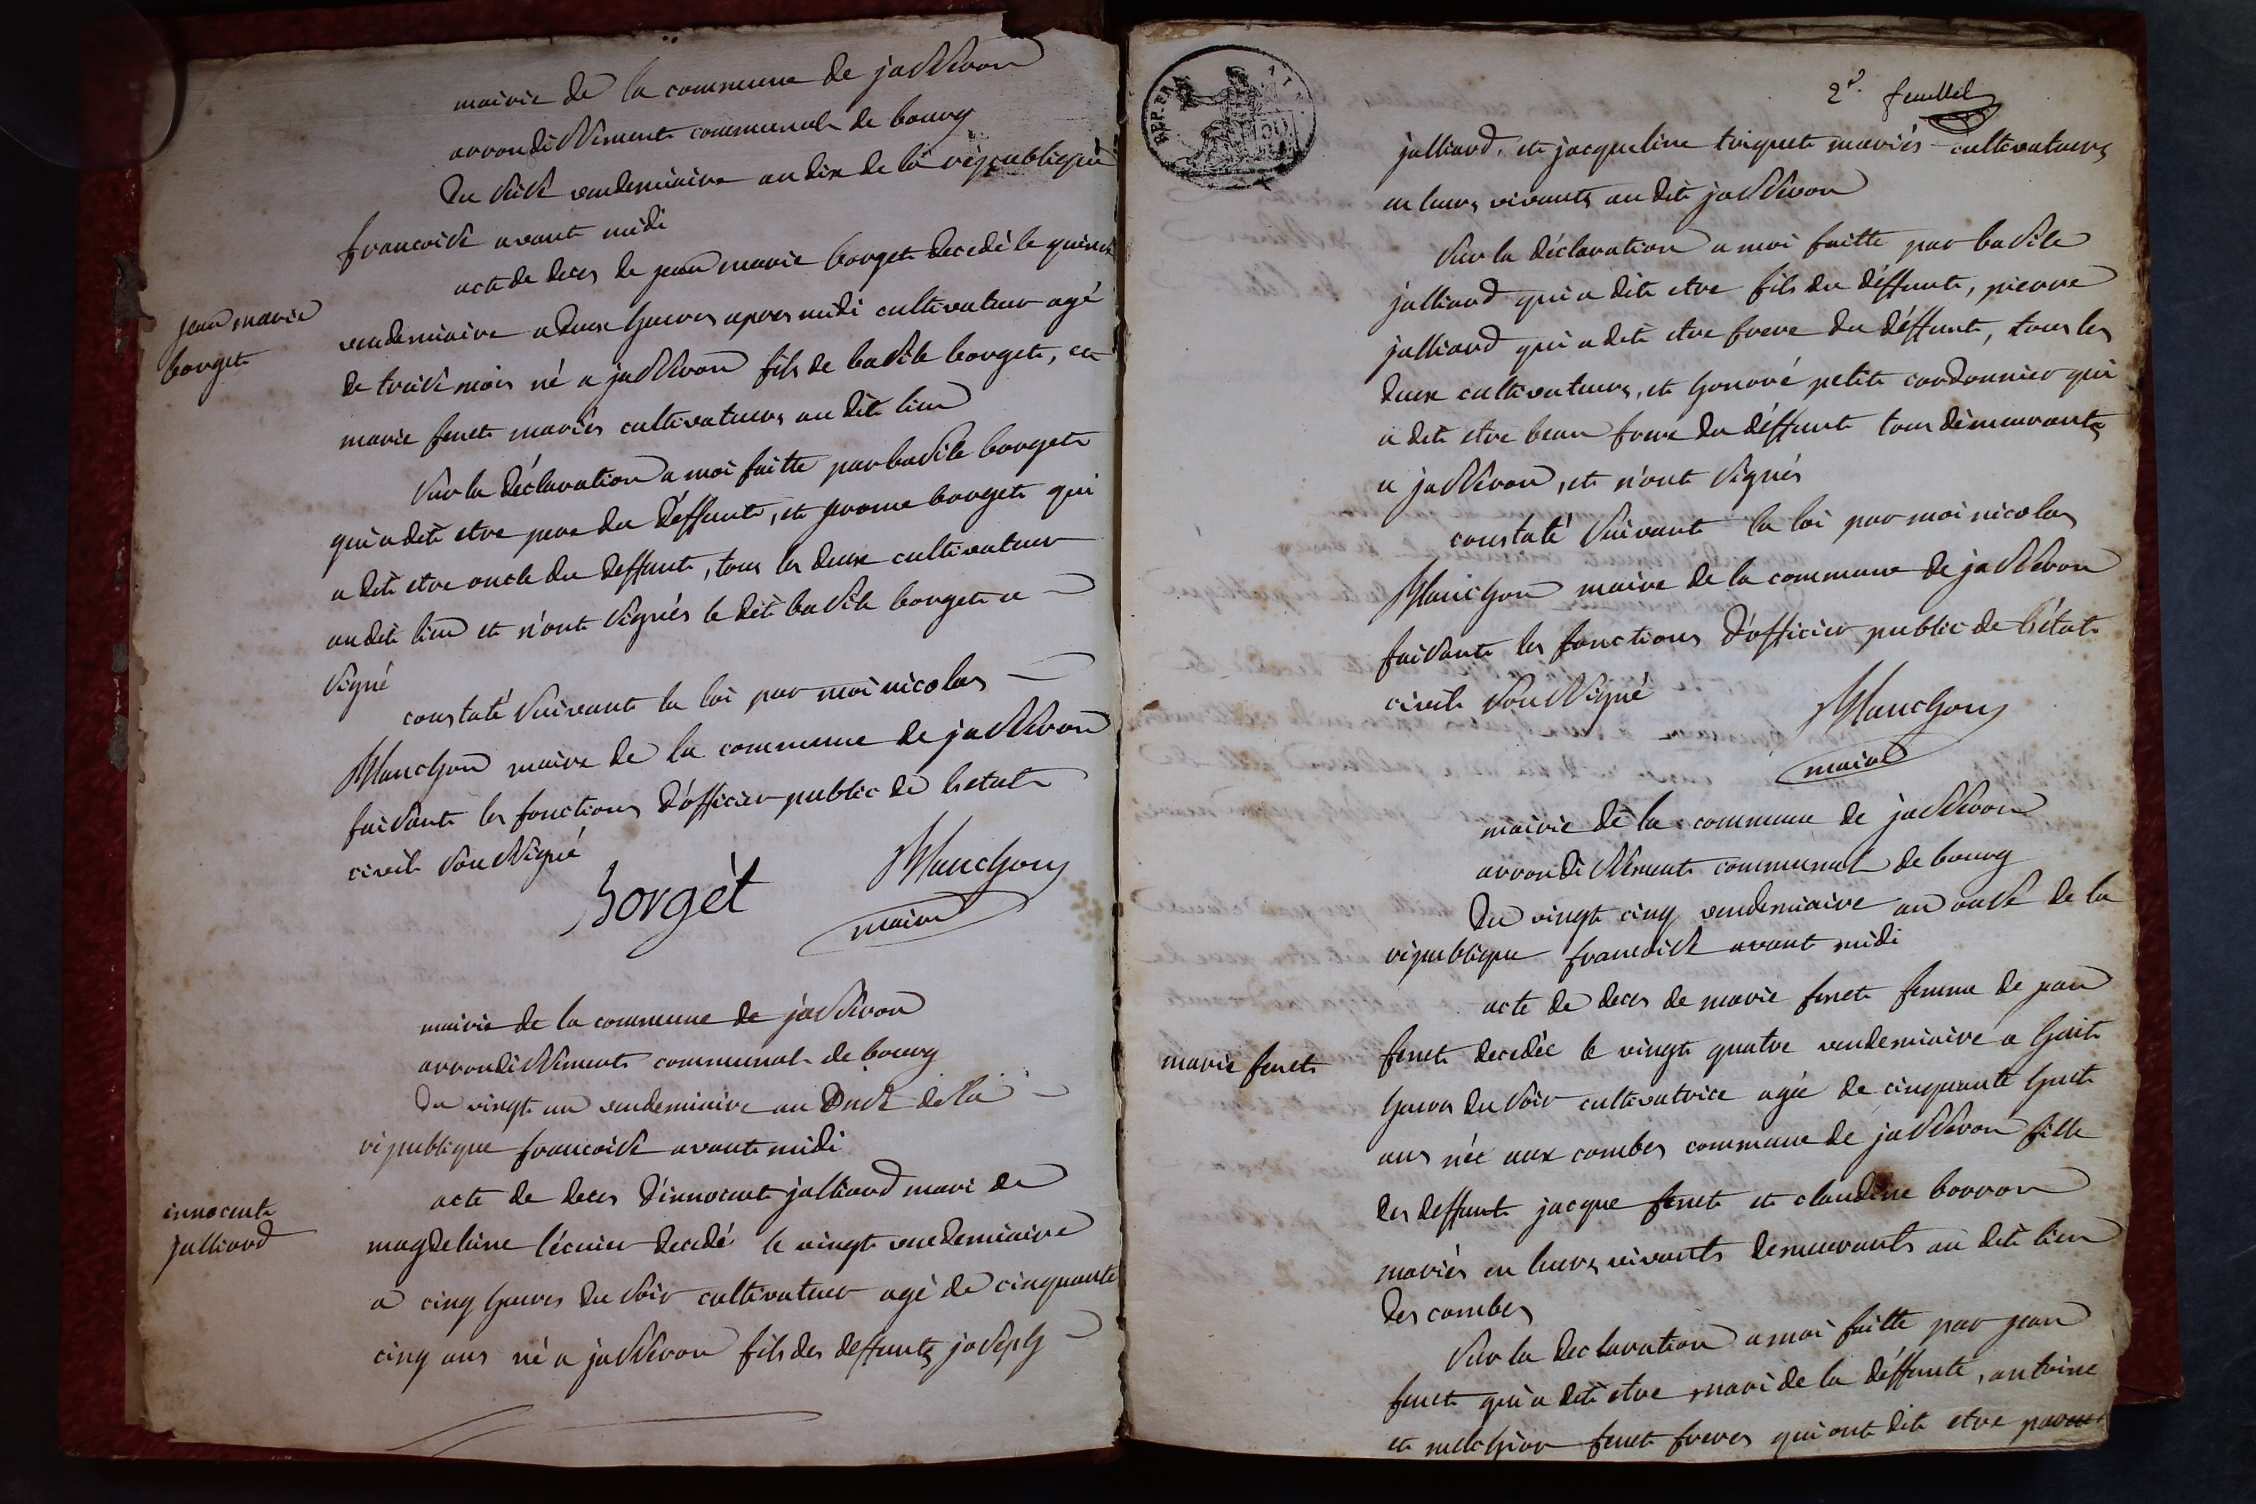 mairie de la commune de jasseron
arrondissement communal de bourg
du seise vendemiaire an dix de la république
francoise avant midi
acte de deces de jean marie borget decedé le quinse
jean marie
borget
vendemiaire a deux heures apres midi cultivateur agé
de treise mois né a jasseron fils de basile borget, et
marie feret mariés cultivateurs au dit lieu
Sur la déclaration a moi faitte par basile borget
qui a dit etre pere du déffunt, et jerome borget qui
a dit etre oncle du deffunt, tous les deux cultivateur
au dit lieu et n'ont signés le dit basile borget a
signé
constaté suivant la loi par moi nicolas
Manchon maire de la commune de jasseron
faisant les fonctions d'officier public de l'etat
civil soussigné
borget
Manchon
maire
mairie de la commune de jasseron
arrondissement communal de bourg
du vingt un vendemiaire an onse de la
république francoise avant midi
acte de deces d'innocent jalliard mari de
innocent
jalliard
magdeleine l'écuier decedé le vingt vendemiaire
a cinq heures du soir cultivateur agé de cinquante
cinq ans né a jasseron fils des deffunts joseph
REP. FRA
2e. feuillet
jalliard, et jacqueline triquet mariés cultivateurs
en leurs vivants au dit jasseron
Sur la déclaration a moi faitte par basile
jalliard qui a dit etre fils du déffunt, pierre
jalliard qui a dit etre frere du déffunt, tous les
deux cultivateurs, et honoré petit cordonnier qui
a dit etre beau frere du déffunt tous demeurants
a jasseron, et n'ont signés
constaté suivant la loi par moi nicolas
Manchon maire de la commune de jasseron
faisant les fonctions d'officier public de l'état
civil soussigné
Manchon
maire
mairie de la commune de jasseron
arrondissement communal de bourg
du vingt cinq vendemiaire an onse de la
république francoise avant midi
acte de deces de marie feret femme de jean
marie feret
feret decedée le vingt quatre vendemiaire a huit
heures du soir cultivatrice agée de cinquante huit
ans née aux combes commune de jasseron fille
des deffunt jacque feret et claudine borron
mariés en leurs vivants demeurants au dit lieu
des combes
Sur la declaration a moi faitte par jean
feret qui a dit etre mari de la déffunte, antoine
et melchior feret freres qui ont dit etre parent